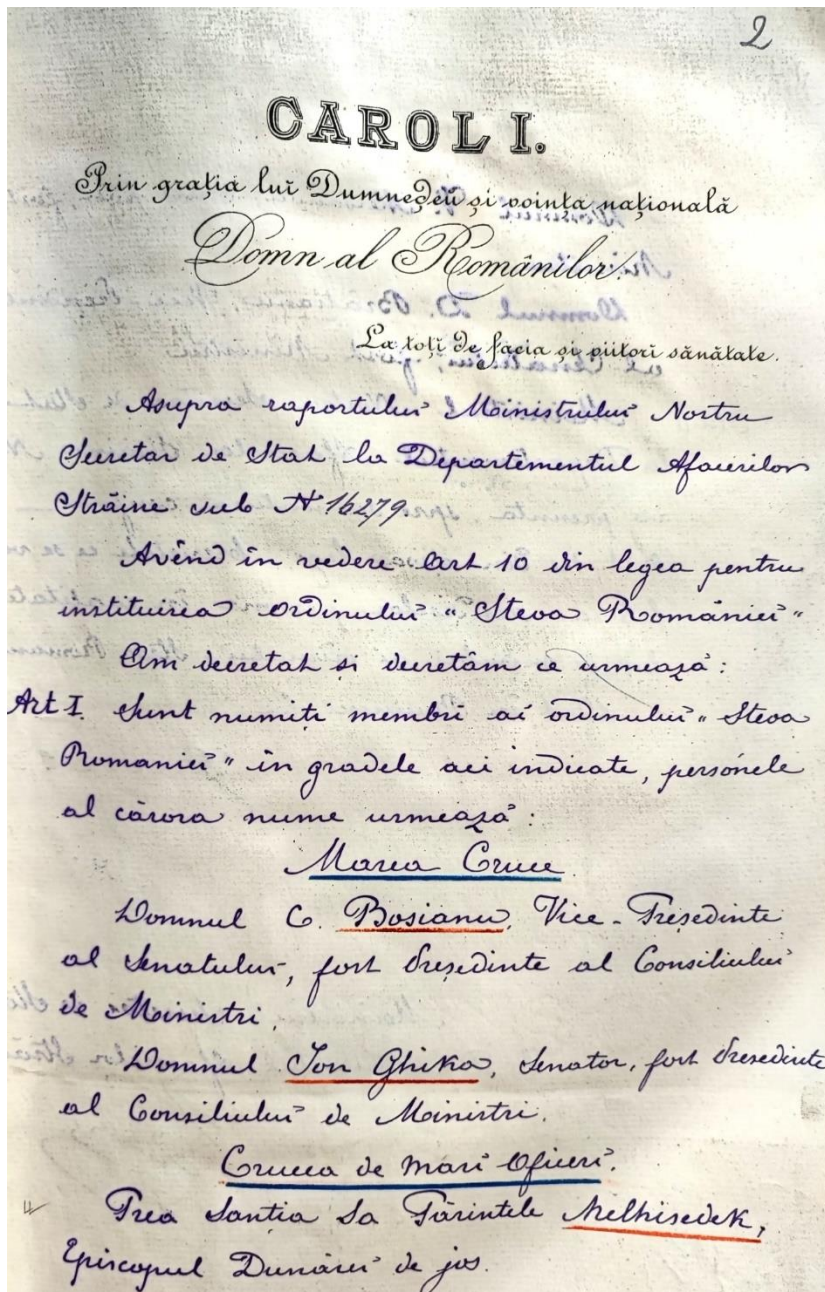 2
CAROL I.
Prin grația lui Dumnedeŭ și vointa națională
Domn al Românilor.
La toți de facia și viitori sănătate.
Asupra raportuluĭ Ministruluĭ Nostru
Secretar de Stat la Departementul Afacerilor
Străine sub Nº 16279.
Avênd în vedere Art 10 din legea pentru
instituirea ordinuluĭ "Steoa Românieĭ"
Am decretat si decretăm ce urmează:
Art I. Sunt numiți membri ai ordinuluĭ "Steoa
Romanieĭ" în gradele aci indicate, persónele
al cărora nume urmează:
Marea Cruce
Domnul C. Bosianu, Vice-Președinte
al Senatuluĭ, fost Președinte al Consiliuluĭ
de Ministri.
Domnul Ion Ghika, Senator, fost Presedinte
al Consiliuluĭ de Ministri.
Crucea de Marĭ Oficerĭ.
Prea Santia Sa Părintele Melhisedek,
Episcopul Dunăreĭ de jos.